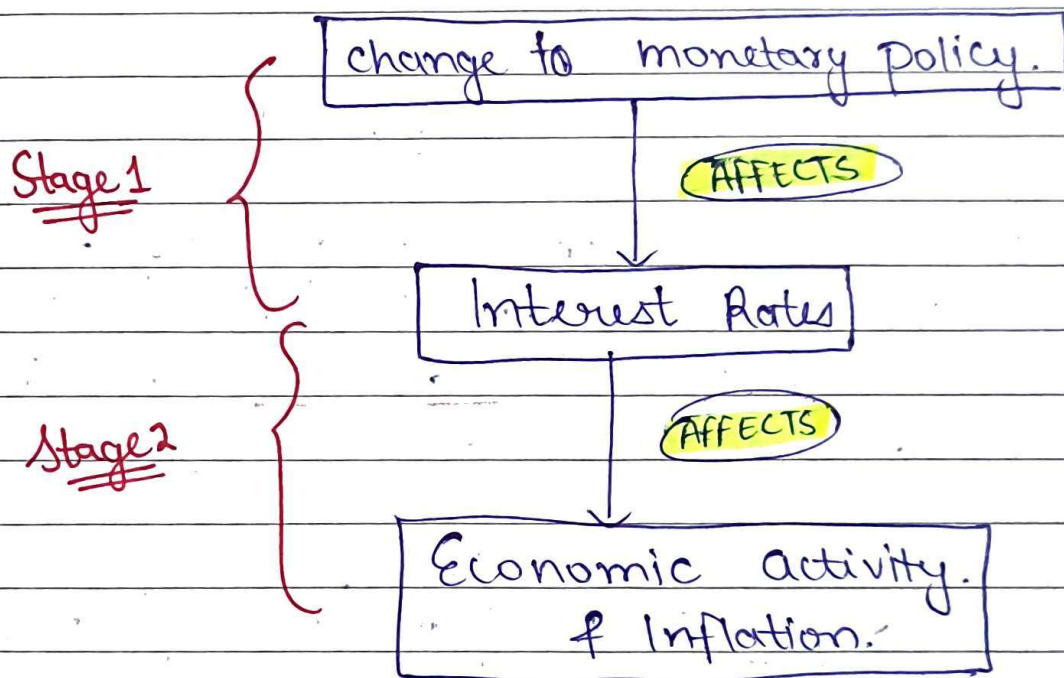 change to monetary policy.
Stage 1
AFFECTS
Interest Rates
Stage 2
AFFECTS
Economic activity.
& Inflation.